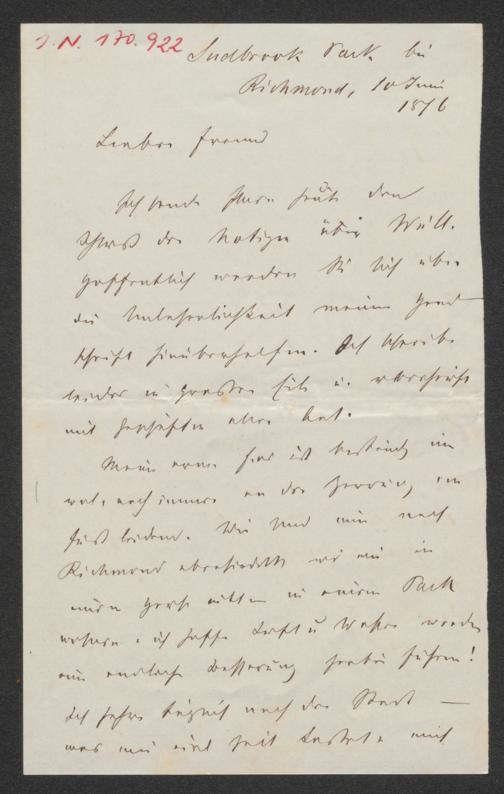 J. N. 170.922
Sudbrook Park bei
Richmond, 10 Juni
1876
Lieber Freund
Ich sende Ihnen heute den
Schluß der Notizen über Will.
Hoffentlich werden Sie sich über
die Unleserlichkeit meiner Hand
schrift hinüberhelfen. Ich schreibe
leider in großer Eile u.
mit Geschäften aller Art.
Meine arme Frau ist beständig un
wol, noch immer an der Zerrung am
Fuß leidend. Wir sind nun nach
Richmond übersiedelt wo wir in
einem Hause mitten in einem Park
wohnen u ich hoffe Luft u Wasser werden
eine endliche Besserung herbei führen!
Ich fahre täglich nach der Stadt —
was mir viel Zeit kostet u mich